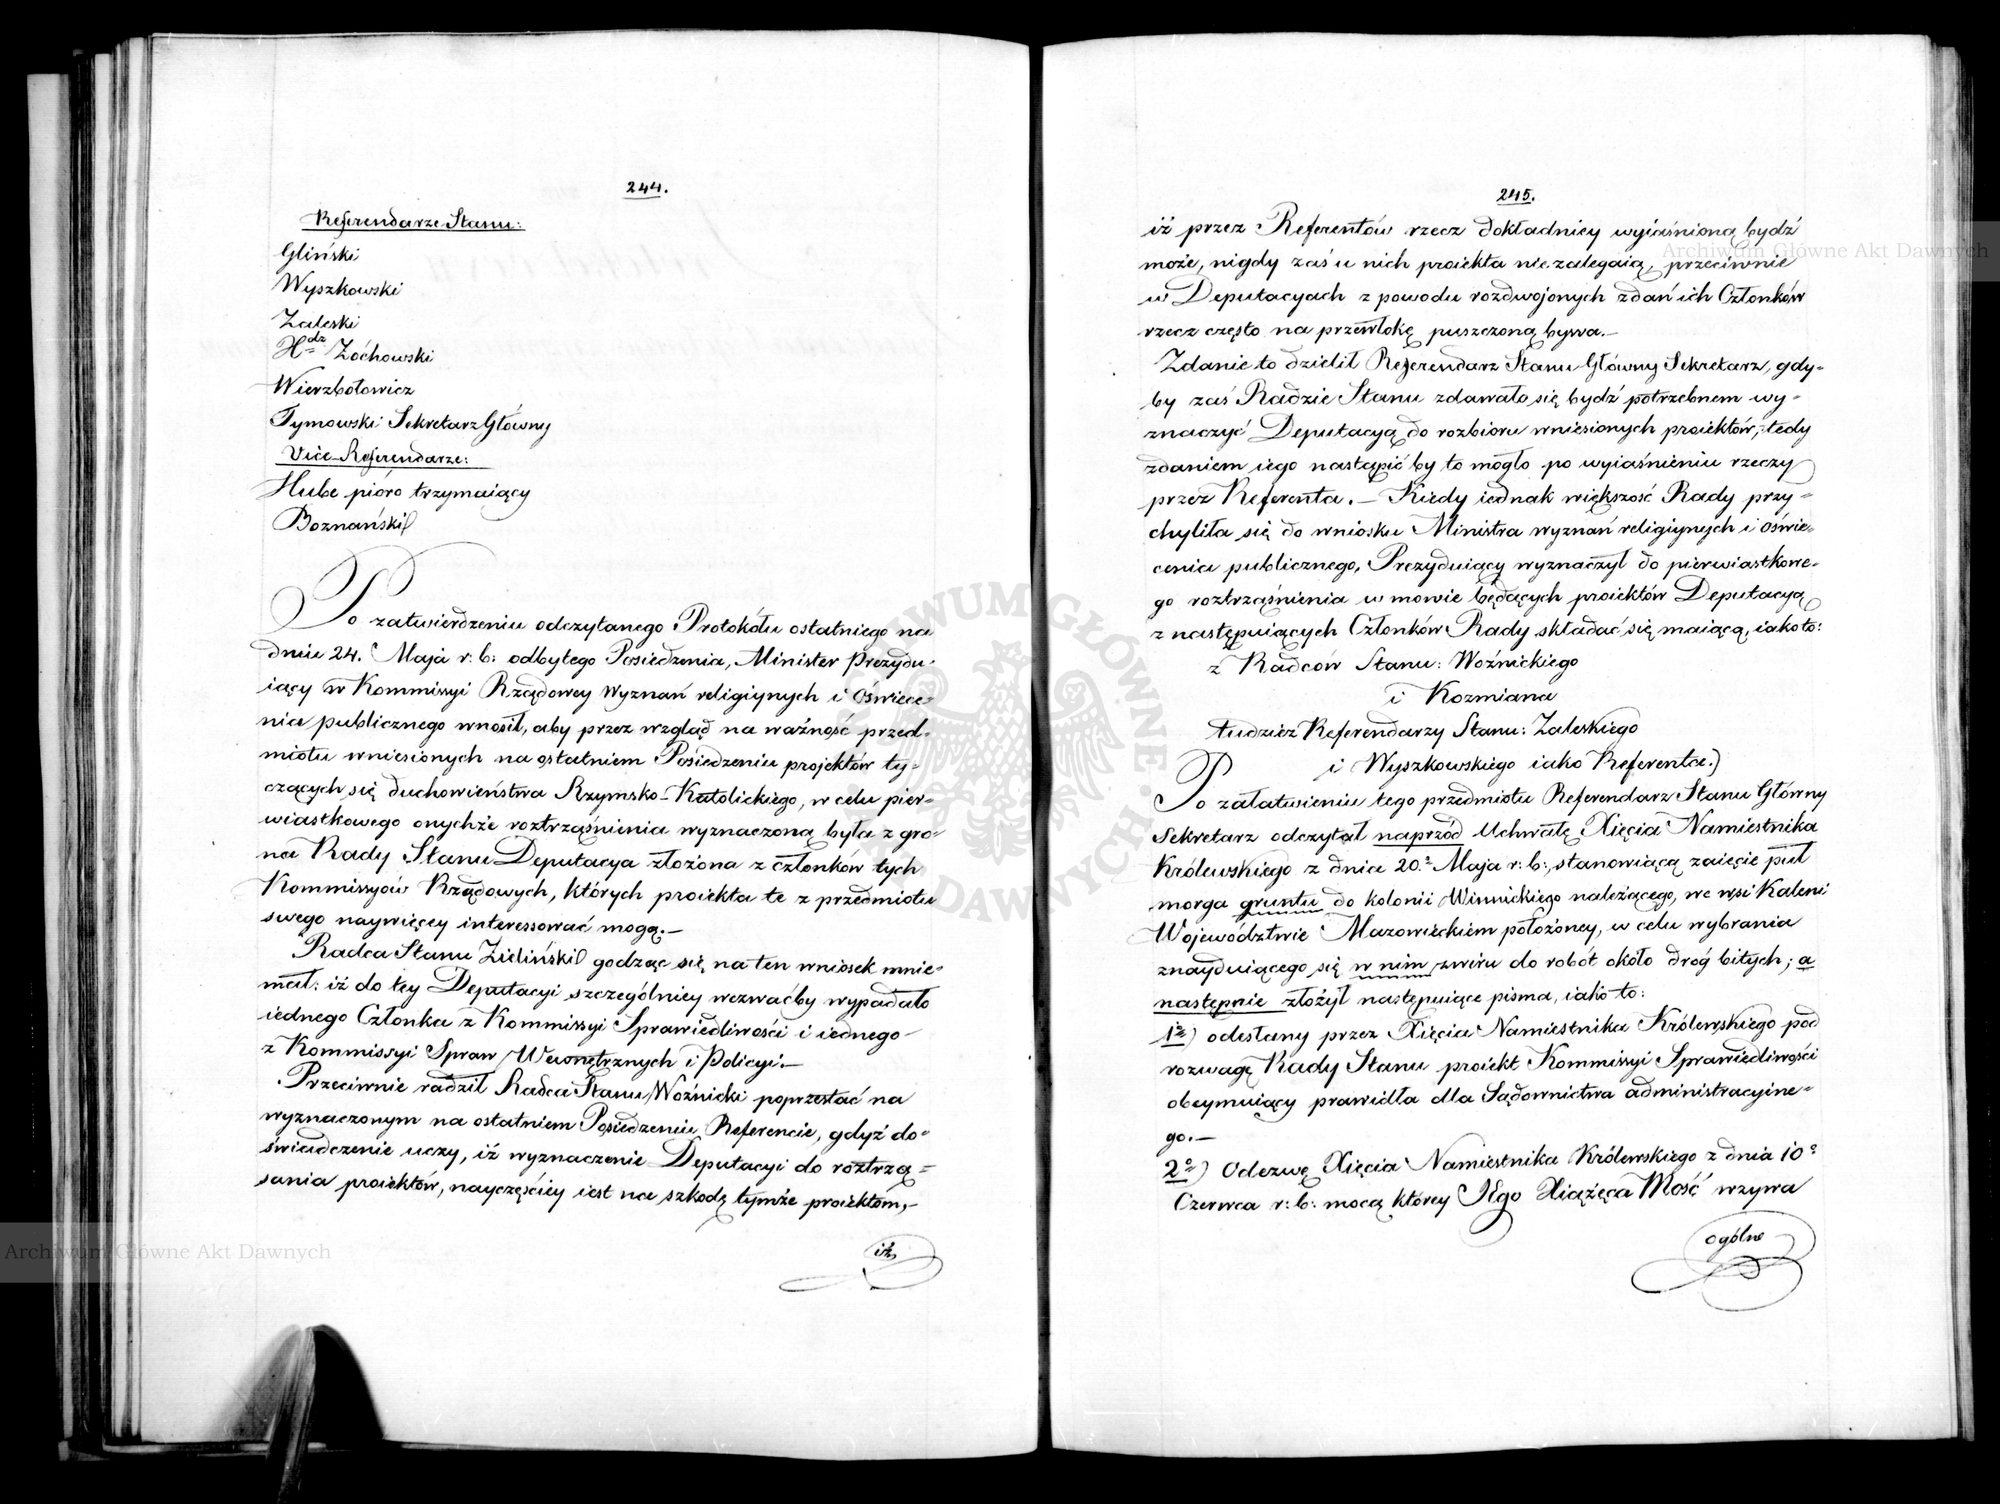 244.
Referendarze Stanu:
Gliński
Wyszkowski
Zaleski
Hdz Żóchowski
Wierzbołowicz
Tymowski Sekretarz Główny
Vice-Referendarze:
Hube pióro trzymaiący
Boznański
Po zatwierdzeniu odczytanego Protokółu ostatniego na
dniu 24. Maja r: b: odbytego Posiedzenia, Minister Prezydu-
iący w Kommissyi Rządowey Wyznań religiynych i Oświece-
nia publicznego wnosił, aby przez wzgląd na ważność przed-
miotu wniesionych na ostatniem Posiedzeniu projektów ty-
czących się duchowieństwa Rzymsko-Katolickiego, w celu pier-
wiastkowego onychże roztrząśnienia wyznaczoną była z gro-
na Rady Stanu Deputacya złożona z członków tych
Kommissyów Rządowych, których proiekta te z przedmiotu
swego naywięcey interessować mogą.—
Radca Stanu Zieliński godząc się na ten wniosek mnie-
mał: iż do tey Deputacyi szczególniey wezwaćby wypadało
iednego Członka z Kommissyi Sprawiedliwości i iednego
z Kommissyi Spraw Wewnętrznych i Policyi.—
Przeciwnie radził Radca Stanu Woźnicki poprzestać na
wyznaczonym na ostatniem Posiedzeniu Referencie, gdyż do-
świadczenie uczy, iż wyznaczenie Deputacyi do roztrzą-
sania proiektów, nayczęściey iest na szkodę tymże proiektom,-
iż
Archiwum Główne Akt Dawnych
245.
iż przez Referentów rzecz dokładniey wyiaśnioną bydź
może, nigdy zaś u nich proiekta nie zalegaią, przeciwnie
w Deputacyach z powodu rozdwojonych zdań ich Członków
rzecz często na przewłokę puszczoną bywa.—
Zdanie to dzielił Referendarz Stanu Główny Sekretarz, gdy-
by zaś Radzie Stanu zdawało się bydź potrzebnem wy-
znaczyć Deputacyą do rozbioru wniesionych proiektów, tedy
zdaniem iego nastąpić by to mogło po wyiaśnieniu rzeczy
przez Referenta.— Kiedy iednak większość Rady przy-
chyliła się do wniosku Ministra wyznań religiynych i oświe-
cenia publicznego, Prezyduiący wyznaczył do pierwiastkowe-
go roztrząśnienia w mowie będących proiektów Deputacyą
z następuiących Członków Rady składać się maiącą, iako to:
z Radców Stanu: Woźnickiego
i Kozmiana
tudzież Referendarzy Stanu: Zaleskiego
i Wyszkowskiego iako Referenta.)
Po załatwieniu tego przedmiotu Referendarz Stanu Główny
Sekretarz odczytał naprzód Uchwałę Xięcia Namiestnika
Królewskiego z dnia 20.° Maja r: b:, stanowiącą zaięcie pół
morga gruntu do kolonii Winnickiego należącego, we wsi Kaleni
Województwie Mazowieckiem położoney, w celu wybrania
znayduiącego się w nim żwiru do robót około dróg bitych; a
następnie złożył następuiące pisma, iako to:
1°) odesłany przez Xięcia Namiestnika Królewskiego pod
rozwagę Rady Stanu proiekt Kommissyi Sprawiedliwości
obeymuiący prawidła dla Sądownictwa administracyine-
go.—
2°) Odezwę Xięcia Namiestnika Królewskiego z dnia 10°
Czerwca r: b: mocą którey JEgo Xiążęca Mość wzywa
ogólne
Archiwum Główne Akt Dawnych
ARCHIWUM GŁÓWNE AKT DAWNYCH